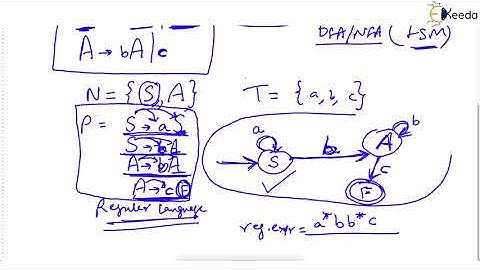 Ekeeda
DFA/NFA (FSM)
A → bA|c
N = {S, A} T = {a, b, c}
P = S → aS
S → bA
A → bA
A → c F
Regular Language
a
S
b
A
b
c
F
reg. expr = a*bb*c